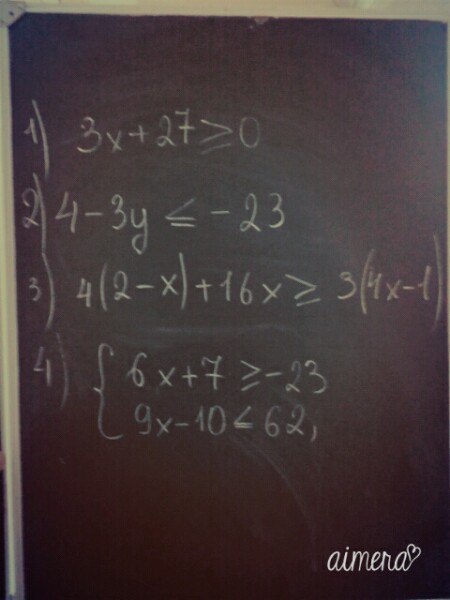 1) 3x+27≥0
2) 4-3y≤-23
3) 4(2-x)+16x≥3(4x-1)
4) { 6x+7≥-23
9x-10≤62,
aimera♡